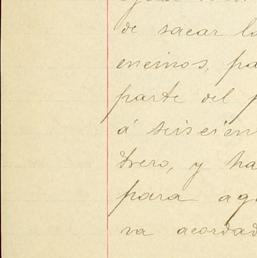 de sacar la
encinos, pa
parte del p
á seiscien
trero, y ha
para ag
va acordad